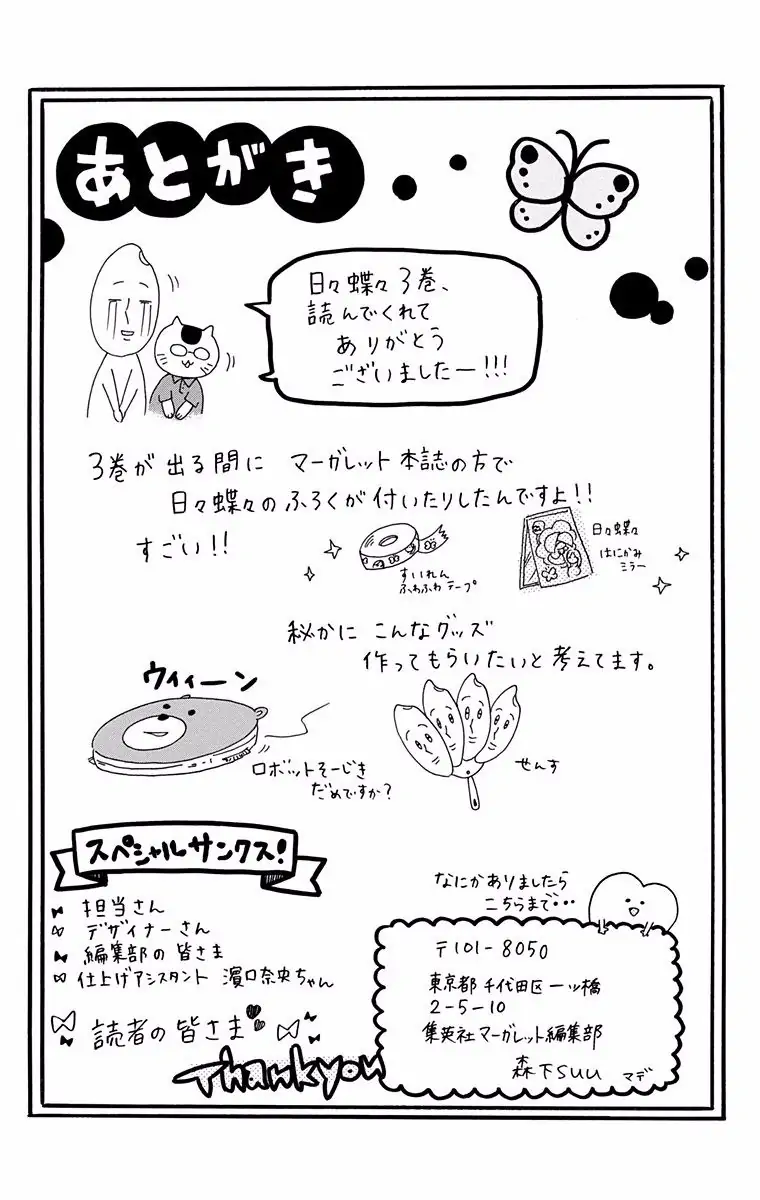 あとがき
日々蝶々3巻、
読んでくれて
ありがとう
ございましたー!!!
3巻が出る間に マーガレット本誌の方で
日々蝶々のふろくが付いたりしたんですよ!!
すごい!!
すいれん
ふわふわテープ
日々蝶々
はにかみ
ミラー
秘かに こんなグッズ
作ってもらいたいと考えてます。
ウィィーン
ロボットそーじき
だめですか?
せんす
スペシャルサンクス!
担当さん
デザイナーさん
編集部の皆さま
仕上げアシスタント 濱口奈央ちゃん
読者の皆さま
Thankyou
なにかありましたら
こちらまで・・・
〒101-8050
東京都千代田区一ツ橋
2-5-10
集英社マーガレット編集部
森下suu マデ